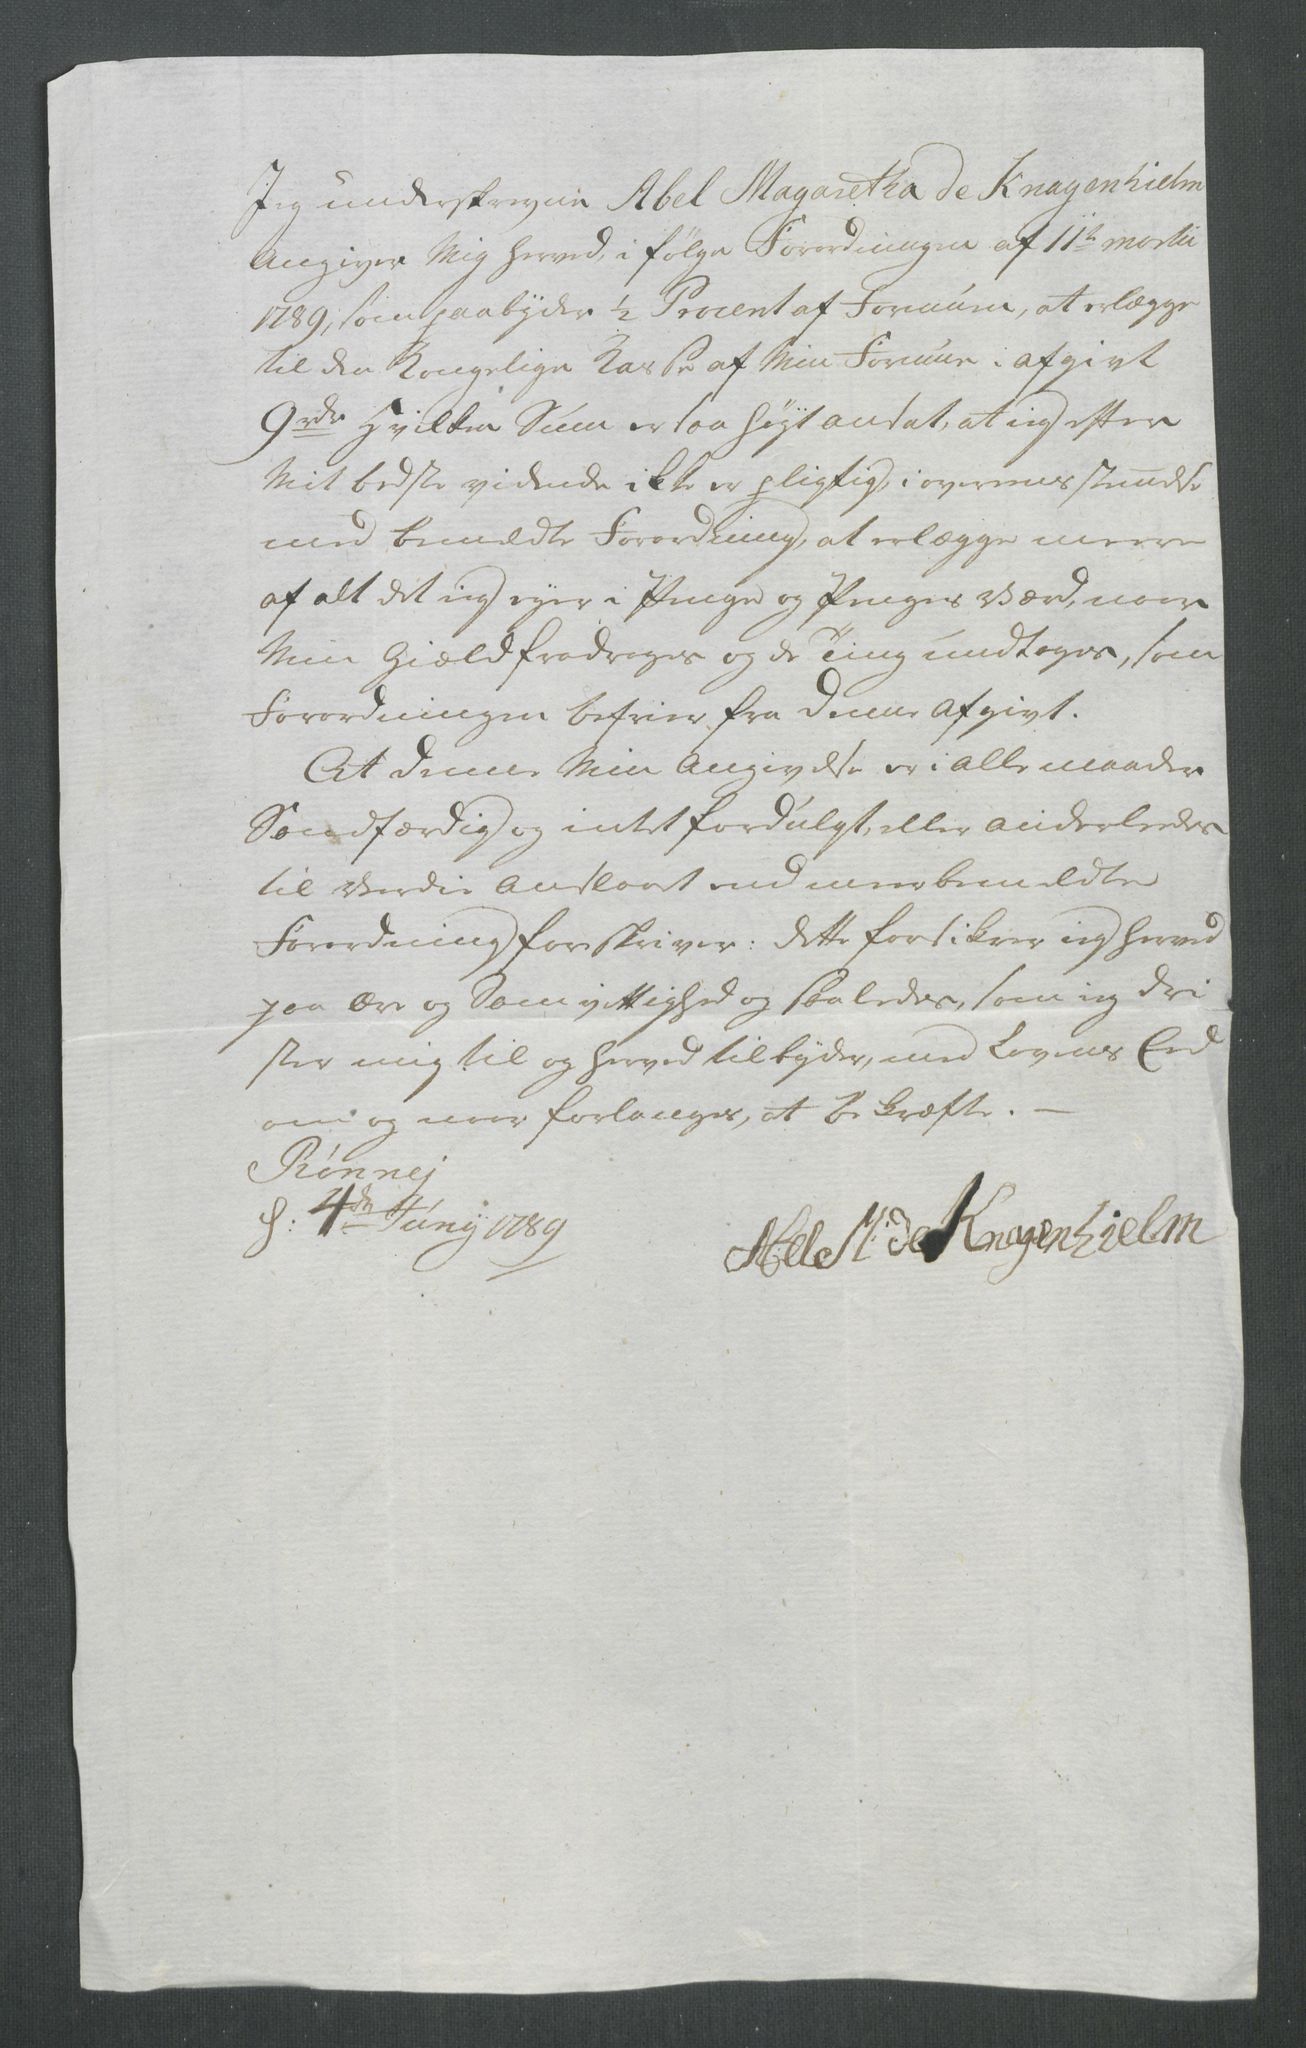 Jeg underskrevne Abel Magaretha de Knagenhielm
angiver Mig herved, i følge Forordningen af 11te martii
1789, som paabyder 1/2 Procent af Formuen, at erlægge
til den Kongelige Kasse af Min Formue i afgivt
9 rdr Hvilken Sum er saa høyt ansat, at ieg efter
Mit bedste vidende ikke er pligtig, i overensstemmelse
med bemeldte Forordning, at erlægge meere
af alt det ieg eyer i Penge og Penges Værd, naar
Min Giæld fradrages og de Ting undtages, som
Forordningen befrier fra denne Afgivt.
At denne Min Angivelse er i alle maader
Sandfærdig og intet fordulgt, eller anderledes
til Verdie anslaaet end meerbemeldte
Forordning foreskriver: dette forsikrer ieg herved
paa Ære og Samvittighed og saaledes, som ieg dri
ster mig til og herved tilbyder, med Lovens Eed
om og naar forlanges, at bekræfte. —
Rønnej
d: 4de Junij 1789
Abel M: de Knagenhielm